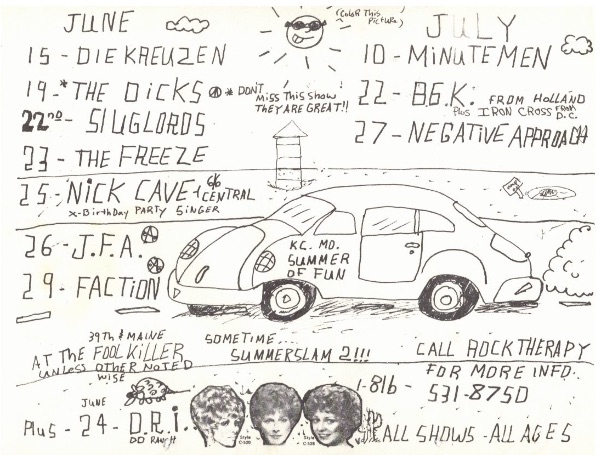 JUNE
15 - DIE KREUZEN
19 - * THE DICKS Ⓐ * DONT MISS THIS SHOW THEY ARE GREAT!!
22ND - SLUGLORDS
23 - THE FREEZE
25 - NICK CAVE @ CENTRAL
X-BirthDay PARTY SINGER
26 - J.F.A. Ⓐ
29 - FACTION Ⓐ
(COLOR THIS PICTURE)
JULY
10 - MINUTEMEN
22 - B.G.K. FROM HOLLAND
PLUS IRON CROSS FROM D.C.
27 - NEGATIVE APPROACH
KC. MO.
SUMMER
OF FUN
39TH & MAINE
AT THE FOOLKILLER
UNLESS OTHER NOTED
WISE
SOMETIME...
SUMMERSLAM 2!!!
CALL ROCKTHERAPY
FOR MORE INFO.
1-816-531-8750
JUNE
Plus - 24 - D.R.I.
DD RANCH
Style
C-535
Style
C-538
ALL SHOWS - ALL AGES